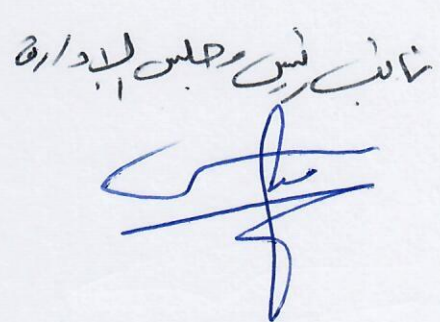 نائب رئيس مجلس الإدارة